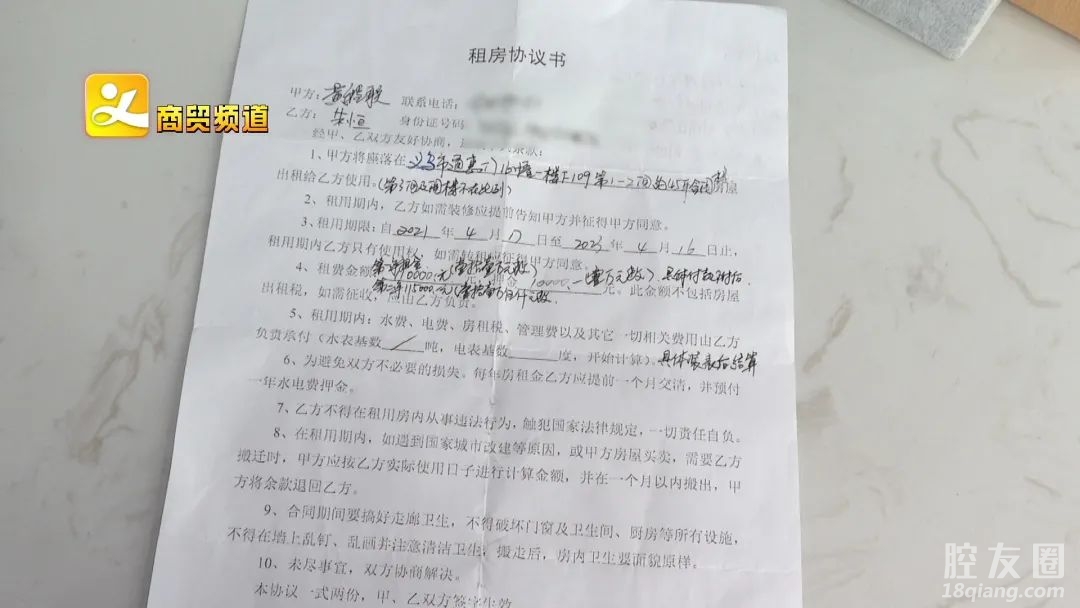 租房协议书
商贸频道
甲方： 联系电话：
乙方：朱恒 身份证号码
经甲、乙双方友好协商，
1、甲方将座落在义乌市 16幢一楼 109第1-2间
出租给乙方使用。
2、租用期内，乙方如需装修应提前告知甲方并征得甲方同意。
3、租用期限：自2021年4月17日至2023年4月16日止，
租用期内乙方只有使用权，如需转租应征得甲方同意。
4、租费金额 10000.一壹万元整)
第二年115000.元 元。此金额不包括房屋
出租税，如需征收，应由乙方负责。
5、租用期内：水费、电费、房租税、管理费以及其它一切相关费用由乙方
负责承付（水表基数 / 吨，电表基数 度，开始计算）。具体
6、为避免双方不必要的损失。每年房租金乙方应提前一个月交清，并预付
一年水电费押金。
7、乙方不得在租用房内从事违法行为，触犯国家法律规定，一切责任自负。
8、在租用期内，如遇到国家城市改建等原因，或甲方房屋买卖，需要乙方
搬迁时，甲方应按乙方实际使用日子进行计算金额，并在一个月以内搬出，甲
方将余款退回乙方。
9、合同期间要搞好走廊卫生，不得破坏门窗及卫生间、厨房等所有设施，
不得在墙上乱钉、乱画并注意清洁卫生，搬走后，房内卫生要面貌原样。
10、未尽事宜，双方协商解决。
本协议一式两份，甲、乙双方签字生效
腔友圈
18qiang.com